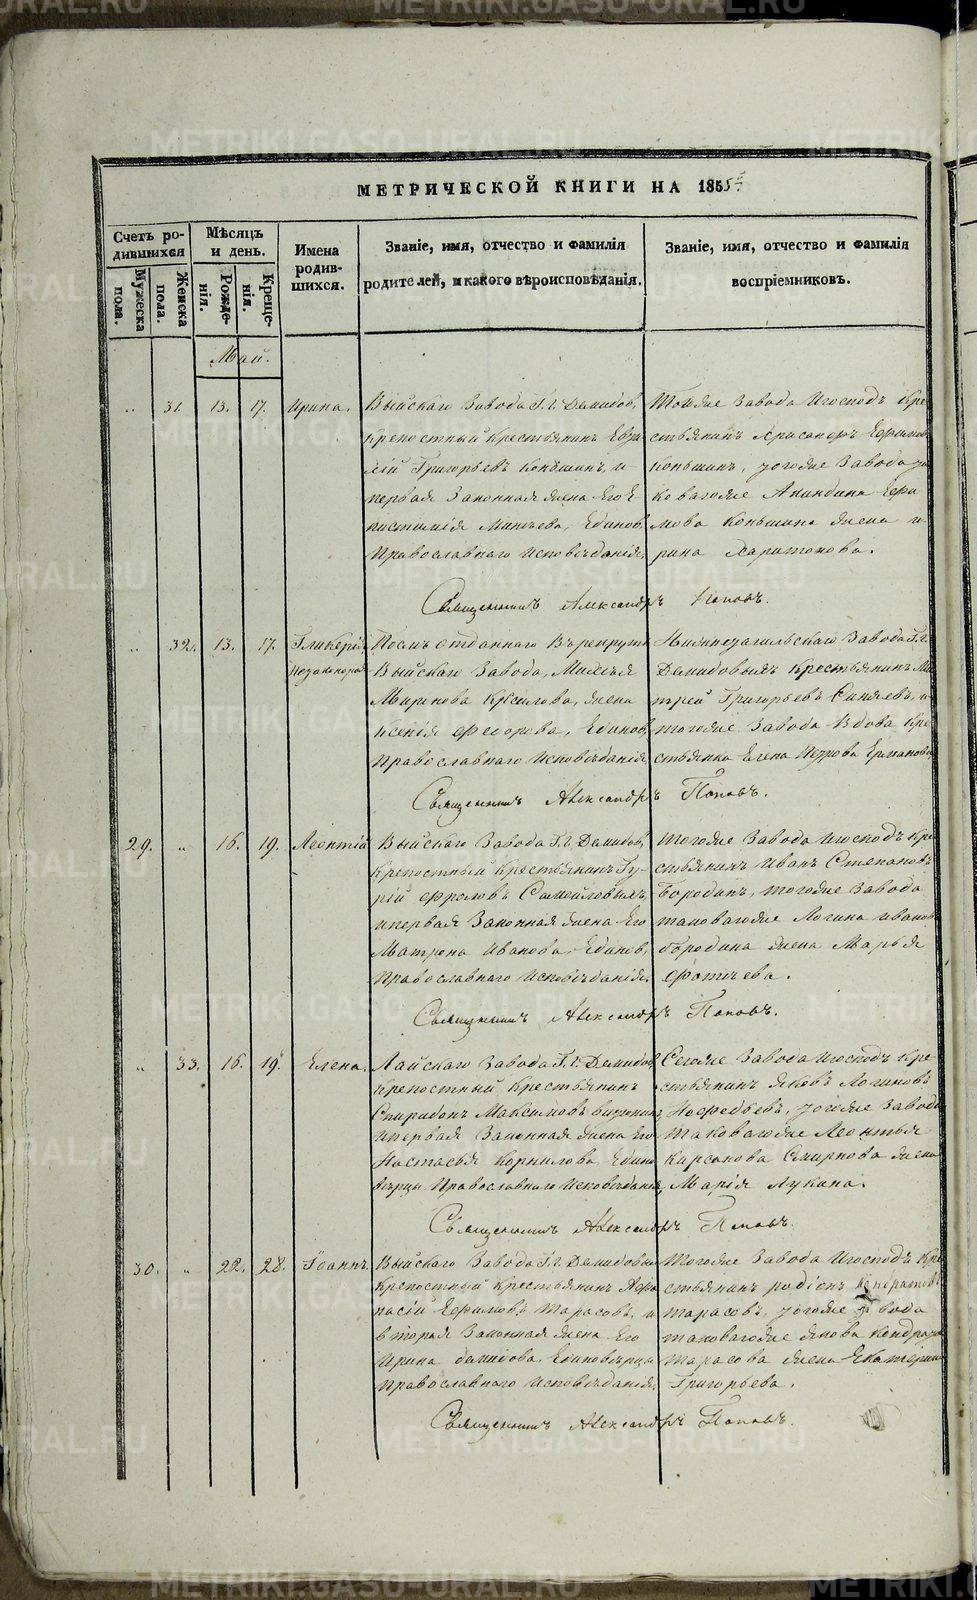 МЕТРИЧЕСКОЙ КНИГИ НА 1855
Счетъ ро-
дившихся
Мужеска пола.
Женска пола.
Мѣсяцъ
и день.
Рожде-
нія.
Креще-
нія.
Имена
родив-
шихся.
Званіе, имя, отчество и фамилія
родителей, и какого вѣроисповѣданія.
Званіе, имя, отчество и фамилія
воспріемниковъ.
Май.
31. 13. 17. Ирина.
Выйскаго Завода Г.г. Демидов.
крепостный крестьянинъ
Григорьевъ Коньшинъ, и
первая Законная жена Его
Минѣева, Единов.
Православнаго Исповѣданія,
Тояже Завода Игосподъ Кре
стьянинъ Ефимов
Коньшинъ, Завода
Акиндина Ефи
мова Коньшина жена И
рина Харитонова.
Священникъ Александръ Поповъ.
32. 13. 17. Гликерія
Незаконорож
Послѣ отданнаго Върекрут
Выйскаго Завода, Михѣя
жена
Ксенія Федорова, Единов.
Православнаго Исповѣданія
Нижнетагильскаго Завода Г.г.
Демидовыхъ Крестьянинъ Ми
трей Григорьевъ и
тогоже Завода Вдова Кре
стьянка Елена Петрова
Священникъ Александръ Поповъ.
29. 16. 19. Леонтій
Выйскаго Завода Г.г. Демидов,
крепостный Крестьянинъ Гу-
рій Фроловъ Самойловыхъ,
ипервая Законная жена Его
Матрона Иванова Единов,
Православнаго Исповѣданія.
Тогоже Завода Игосподъ Кре
стьянинъ Иванъ Степановъ
Бородинъ, тогоже Завода
таковагоже Логина Иванов
Бородина жена Марья
Фотѣева.
Священникъ Александръ Поповъ.
33. 16. 19. Елена.
Лайскаго Завода Г.г. Демидов,
крепостный крестьянинъ
Спиридонъ Максимовъ
ипервая Законная жена Его
Настасья Корнилова Едино
вѣрцы Православнаго Исповѣданія,
Сегоже Завода Игосподъ Кре-
стьянинъ Яковъ Логиновъ
Завода
таковагоже Леонтья
Смирнова жена
Марія Лукина.
Священникъ Александръ Поповъ.
30. 22. 28. Іоаннъ.
Выйскаго Завода Г.г. Демидовы
крепостный крестьянинъ Афа
насій Ефимовъ Тарасовъ, и
вторая Законная жена Его
Ирина Единовѣрцы
Православнаго Исповѣданія,
Тогоже Завода Игосподъ Кре
стьянинъ Родіонъ
Тарасовъ, Завода
таковагоже Якова Кондрат
Тарасова жена Екатерина
Григорьева.
Священникъ Александръ Поповъ.
METRIKI.GASO-URAL.RU